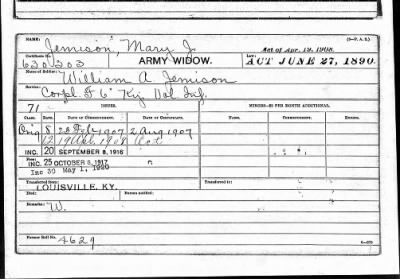 NAME: (3—P. A. S.)
Jemison, Mary J. Act of Apr. 19, 1908.
Certificate No. ARMY WIDOW. Law:
630303 ACT JUNE 27, 1890.
Name of Soldier:
William A Jemison
Service:
Corpl. F 6" Ky Vol Inf.
71 ISSUES. MINORS—$2 PER MONTH ADDITIONAL.
CLASS. RATE. DATE OF COMMENCEMENT. DATE OF CERTIFICATE. COMMENCEMENT.
Orig 8 28 Feb 1907 2 Aug 1907
12 19 Apl. 1908 Act
INC. 20 SEPTEMBER 8, 1916
INC. 25 OCTOBER 6, 1917 "
Inc 30 May 1, 1920
Transferred from:
LOUISVILLE, KY.
Died: Bureau notified:
Remarks:
W.
Former Roll No. 4629